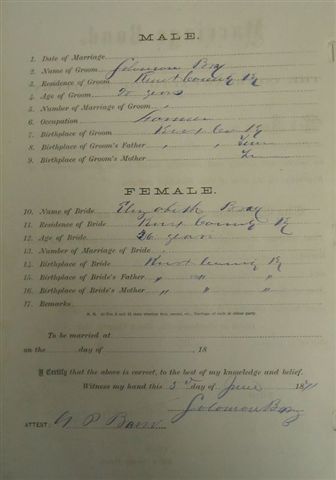 MALE.
1. Date of Marriage
2. Name of Groom Solomon Bray
3. Residence of Groom Knox County Ky
4. Age of Groom years
5. Number of Marriage of Groom
6. Occupation Farmer
7. Birthplace of Groom Knox Co Ky
8. Birthplace of Groom's Father " "
9. Birthplace of Groom's Mother
FEMALE.
10. Name of Bride Elizabeth Bray
11. Residence of Bride Knox County Ky
12. Age of Bride 26 years
13. Number of Marriage of Bride
14. Birthplace of Bride Knox County Ky
15. Birthplace of Bride's Father " " "
16. Birthplace of Bride's Mother " " "
17. Remarks
To be married at
on the day of , 18
I Certify that the above is correct, to the best of my knowledge and belief.
Witness my hand this 5 day of June 1871
Solomon Bray
ATTEST: